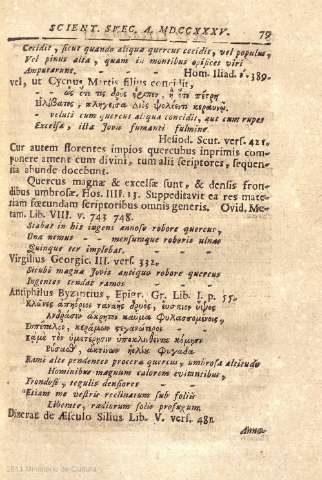 SCIENT. SVEC. A. MDCCXXXV. 79
Cecidit, sicut quando aliqua quercus cecidit, vel populus,
Vel pinus alta, quam in montibus opifices viri
Amputarunt. Hom. Iliad. 389.
vel, ut Cycnus Martis filius concidit,
- - ὡς ὅτε τις δρῦς ἤριπεν, ἢ ὅτε πέτρη
Ηλίβατος, πληγεῖσα Διὸς ψολόεντι κεραυνῷ.
- veluti cum quercus aliqua concidit, aut cum rupes
Excelsa, ista Jovis fumanti fulmine.
Hesiod. Scut. vers. 421.
Cur autem florentes impios quercubus inprimis com
ponere ament cum divini, tum alii scriptores, sequen-
tia abunde docebunt.
Quercus magnæ & excelsæ sunt, & densis fron-
dibus umbrosæ, Hos. IIII. 13. Suppeditavit ea res mate-
riam fœcundam scriptoribus omnis generis. Ovid. Me-
tam. Lib. VIII. v. 743 748.
Stabat in his ingens annoso robore quercus,
Una nemus - - mensuraque roboris ulnas
Quinque ter implebat.
Virgilius Georgic. III vers. 332.
Sicubi magna Jovis antiquo robore quercus
Ingentes tendat ramos - -
Antiphilus Byzantius, Epigr. Gr. Lib. I. p. 57.
Κλῶνες ἀπήοροι ταναῆς δρυὸς, εὔσκιον ὕψος
Ανδράσιν ἄκρητον καῦμα φυλασσομένοις,
Εὐπέταλοι, κεράμων στεγανώτεροι - -
ἀκτίνων ἠελίου φυγάδα
Rami alte pendentes procera quercus, umbrosa altitudo
Hominibus magnum calorem evitantibus,
Frondosi, tegulis densiores - -
Etiam me vestris reclinatum sub foliis
Liberate, radiorum solis profugum.
Dixerat de Æsculo Silius Lib. V. vers. 481.
Anno-
2011 Ministerio de Cultura